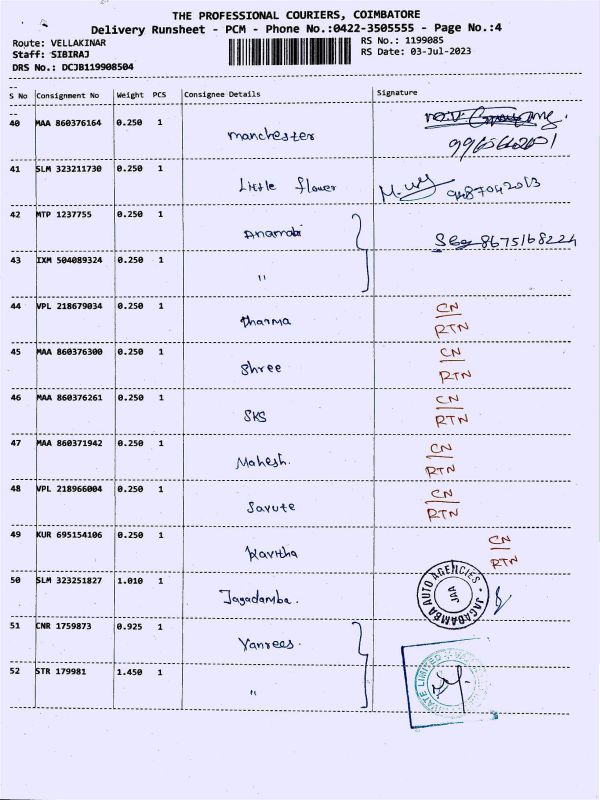 THE PROFESSIONAL COURIERS, COIMBATORE
Delivery Runsheet - PCM - Phone No.:0422-3505555 - Page No.:4
Route: VELLAKINAR
RS No.: 1199085
Staff: SIBIRAJ
RS Date: 03-Jul-2023
DRS No.: DCJB119908504
S No Consignment No Weight PCS Consignee Details Signature
40 MAA 860376164 0.250 1 manchester
41 SLM 323211730 0.250 1 Little flower 9487042013
42 MTP 1237755 0.250 1 8675168224
43 IXM 504089324 0.250 1 "
44 VPL 218679034 0.250 1 Dharma CN
RTN
45 MAA 860376300 0.250 1 Shree CN
RTN
46 MAA 860376261 0.250 1 SKS CN
RTN
47 MAA 860371942 0.250 1 Mahesh. CN
RTN
48 VPL 218966004 0.250 1 Savute CN
RTN
49 KUR 695154106 0.250 1 Kavitha CN
RTN
50 SLM 323251827 1.010 1 Jagadamba. JAGADAMBA AUTO AGENCIES
JAA
51 CNR 1759873 0.925 1 Vanrees.
52 STR 179981 1.450 1 " PRIVATE LIMITED